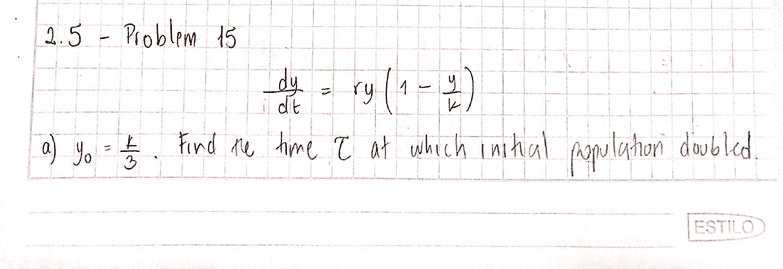 2.5 - Problem 15
dy/dt = ry(1 - y/k)
a) y₀ = k/3. Find the time τ at which initial population doubled.
ESTILO